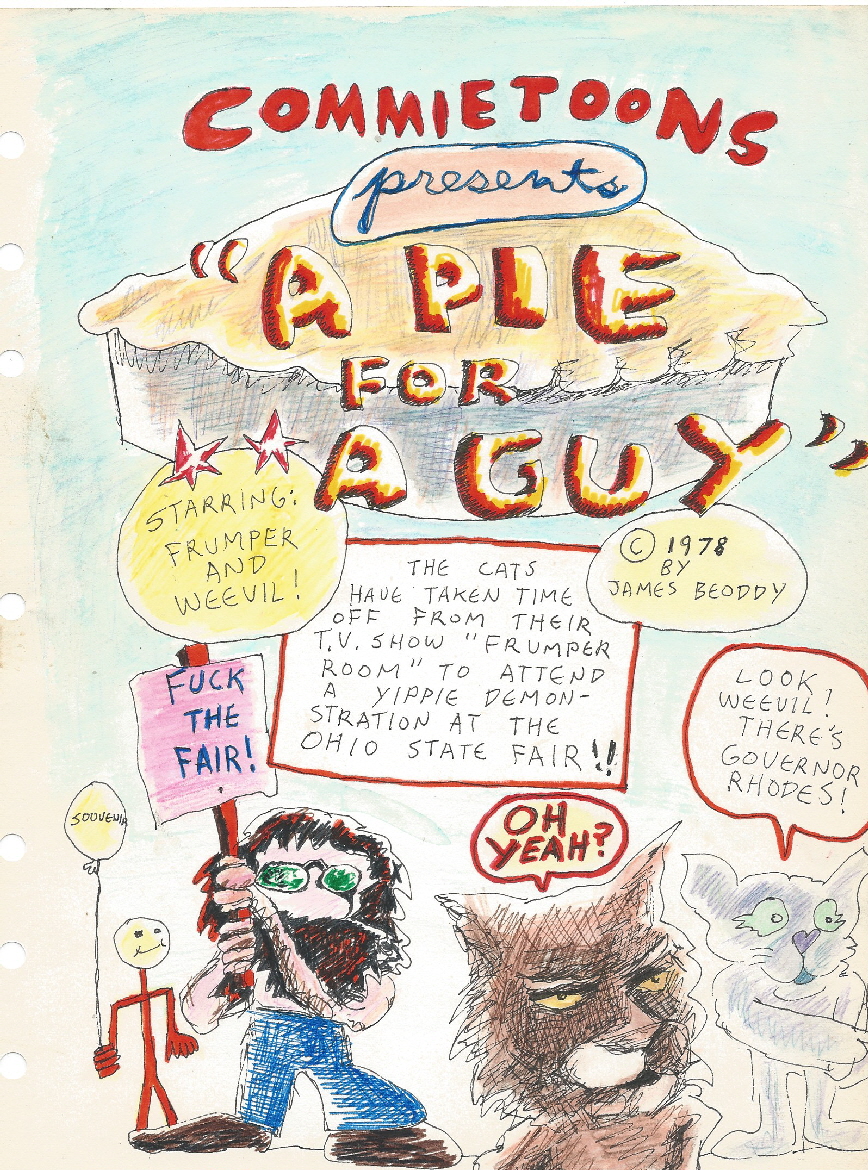 COMMIETOONS
presents
"A PIE
FOR
A GUY"
STARRING:
FRUMPER
AND
WEEVIL!
© 1978
BY
JAMES BEODDY
THE CATS
HAVE TAKEN TIME
OFF FROM THEIR
T.V. SHOW "FRUMPER
ROOM" TO ATTEND
A YIPPIE DEMON-
STRATION AT THE
OHIO STATE FAIR!!
FUCK
THE
FAIR!
LOOK
WEEVIL!
THERE'S
GOVERNOR
RHODES!
SOUVENIR
OH
YEAH?